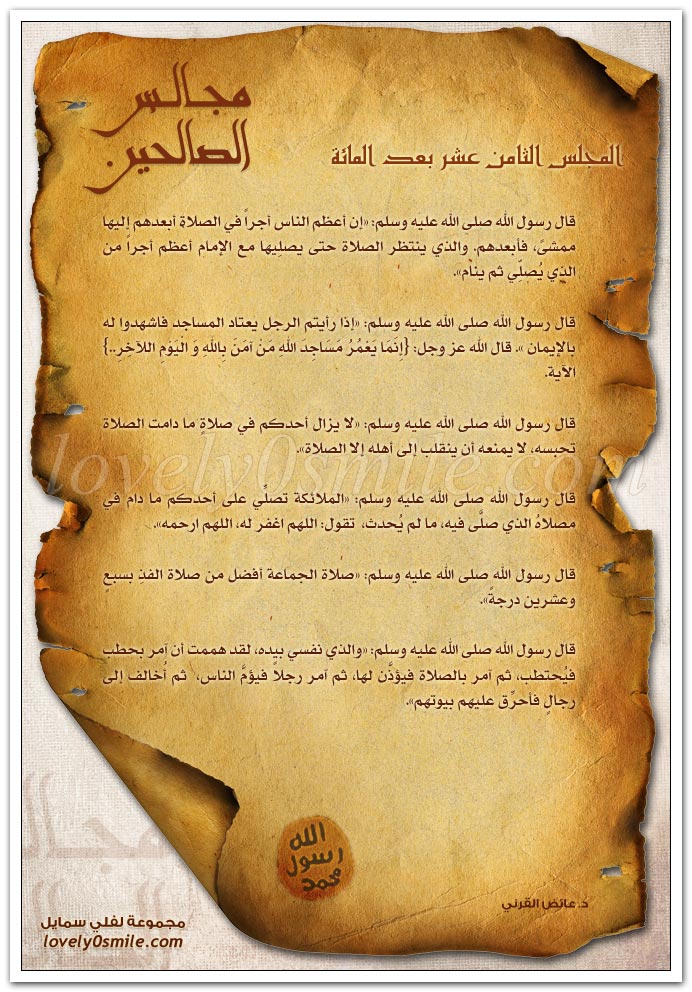 مجالس
الصالحين
المجلس الثامن عشر بعد المائة
قال رسول الله صلى الله عليه وسلم: «إن أعظم الناس أجراً في الصلاة أبعدهم إليها
ممشىً، فأبعدهم. والذي ينتظر الصلاة حتى يصليها مع الإمام أعظم أجراً من
الذي يُصلِّي ثم ينام».
قال رسول الله صلى الله عليه وسلم: «إذا رأيتم الرجل يعتاد المساجد فاشهدوا له
بالإيمان». قال الله عز وجل: {إِنَمَا يَعْمُرُ مَسَاجِدَ اللهِ مَنْ آمَنَ بِاللهِ وَ الْيَوْمِ اللآخِرِ..}
الآية.
قال رسول الله صلى الله عليه وسلم: «لا يزال أحدكم في صلاةٍ ما دامت الصلاة
تحبسه، لا يمنعه أن ينقلب إلى أهله إلا الصلاة».
lovely0smile.com
قال رسول الله صلى الله عليه وسلم: «الملائكة تصلِّي على أحدكم ما دام في
مصلاهُ الذي صلَّى فيه، ما لم يُحدث، تقول: اللهم اغفر له، اللهم ارحمه».
قال رسول الله صلى الله عليه وسلم: «صلاة الجماعة أفضل من صلاة الفذِ بسبعٍ
وعشرين درجةً».
قال رسول الله صلى الله عليه وسلم: «والذي نفسي بيده، لقد هممت أن آمر بحطب
فيُحتطب، ثم آمر بالصلاة فيؤذَّن لها، ثم آمر رجلاً فيؤمَّ الناس، ثم أُخالف إلى
رجالٍ فأحرِّق عليهم بيوتهم».
الله
رسول
محمد
د.عائض القرني
مجموعة لفلي سمايل
lovely0smile.com